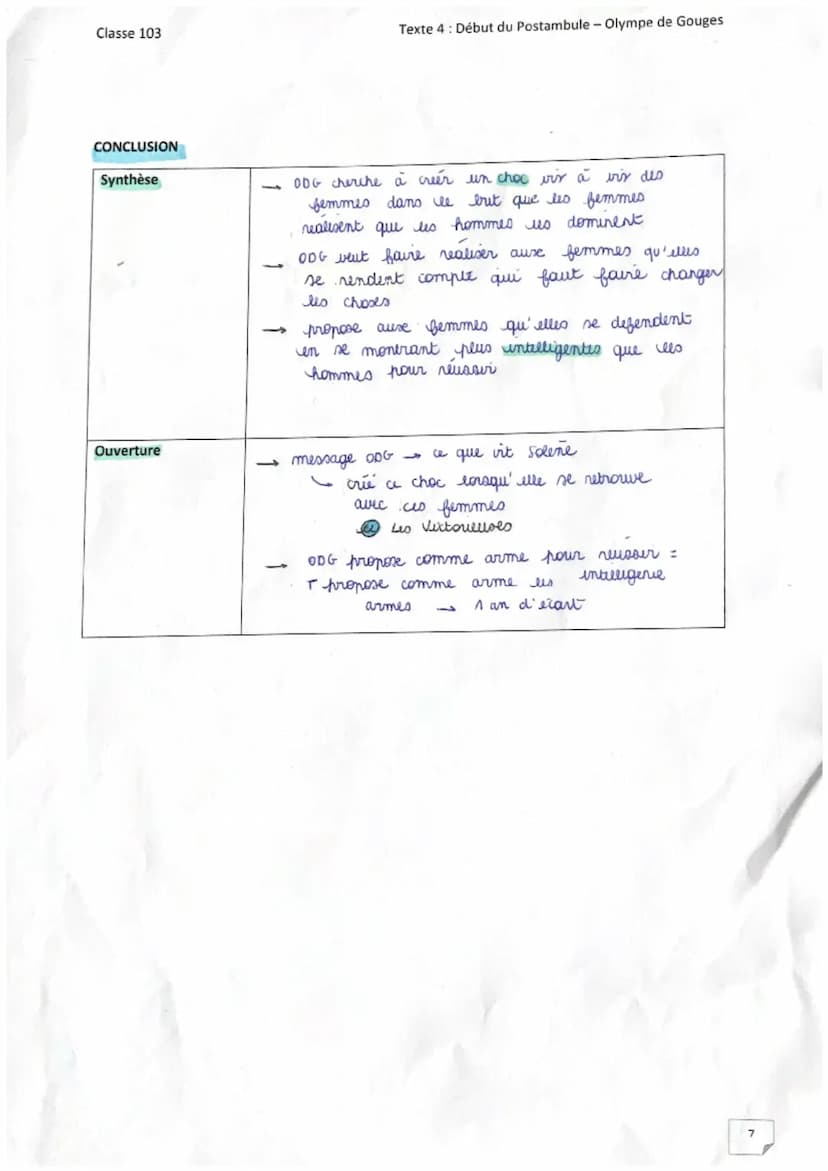 Classe 103
Texte 4 : Début du Postambule – Olympe de Gouges
CONCLUSION
Synthèse
→ ODG cherche à créer un choc vis à vis des
femmes dans le but que les femmes
réalisent que les hommes les dominent
→ ODG veut faire réaliser aux femmes qu'elles
se rendent compte qui faut faire changer
les choses
→ propose aux femmes qu'elles se defendent
en se montrant plus intelligentes que les
hommes pour réussir
Ouverture
→ message ODG → ce que vit Solène
↳ créé ce choc lorsqu'elle se retrouve
avec ces femmes
Les Victorieuses
→ ODG propose comme arme pour réussir =
intelligence
T propose comme arme les
armes → 1 an d'écart
7